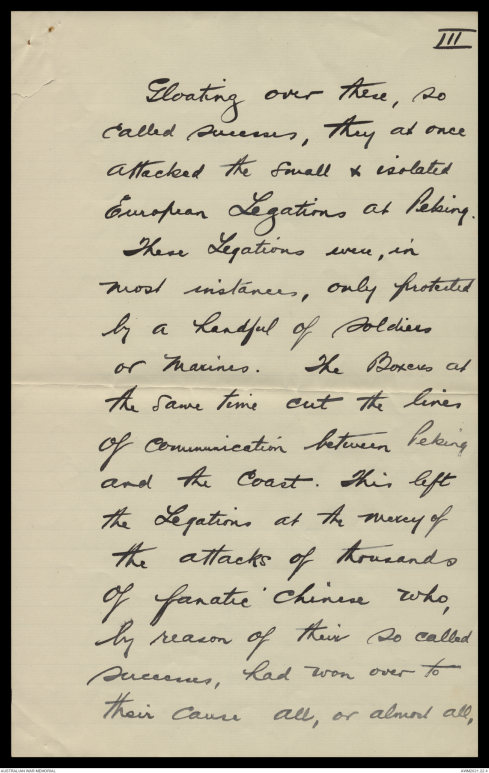 III
Gloating over these, so
called successes, they at once
attacked the small & isolated
European Legations at Peking.
These Legations were, in
most instances, only protected
by a handful of soldiers
or Marines. The Boxers at
the same time cut the lines
of communication between Peking
and the Coast. This left
the Legations at the mercy of
the attacks of thousands
of fanatic Chinese who,
by reason of their so called
successes, had won over to
their cause all, or almost all,
AUSTRALIAN WAR MEMORIAL